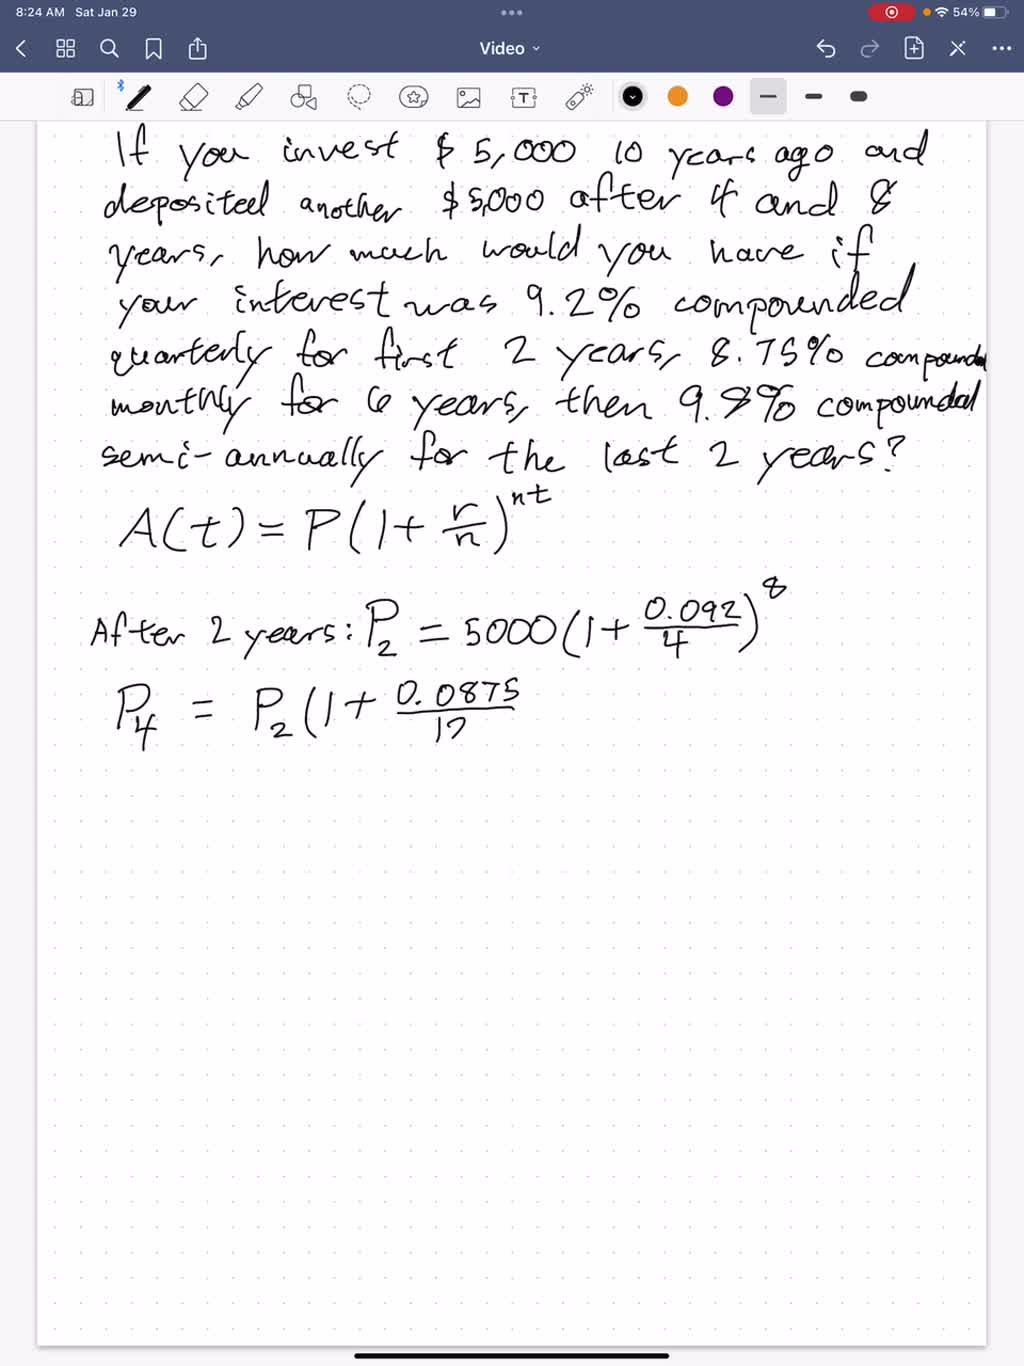 8:24 AM Sat Jan 29
54%
Video
T
If you invest $5,000 10 years ago and
deposited another $5,000 after 4 and 8
years, how much would you have if
your interest was 9.2% compounded
quarterly for first 2 years, 8.75% compounded
monthly for 6 years, then 9.8% compounded
semi-annually for the last 2 years?
A(t) = P(1 + r/n)^nt
After 2 years: P₂ = 5000(1 + 0.092/4)^8
P₄ = P₂(1 + 0.0875/12